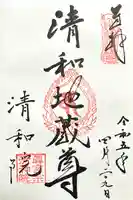 奉拝
令和五年
四月二九日
清和地蔵尊
清和院